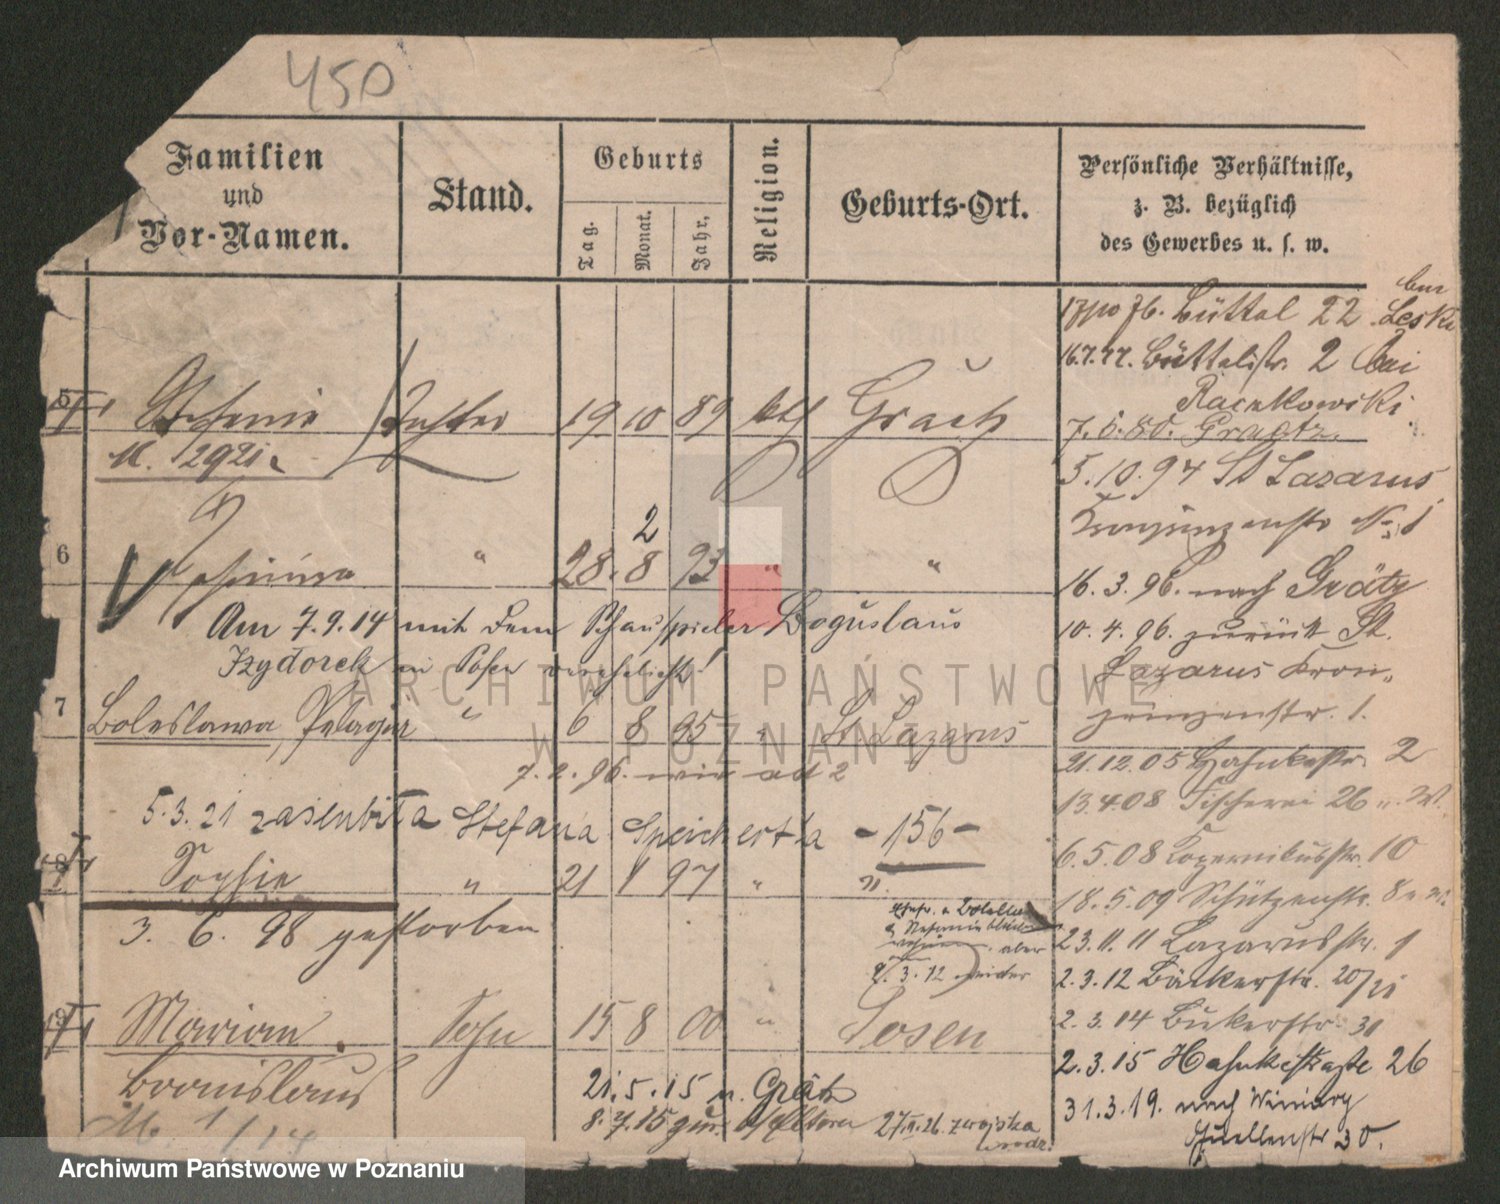 450
Familien und Vor-Namen.
Stand.
Geburts
Tag.
Monat.
Jahr.
Religion.
Geburts-Ort.
Persönliche Verhältnisse, z. B. bezüglich des Gewerbes u. s. w.
5 Stefanie Tochter 19 10 89 kth Graetz
M. 1921.
2
6 " 28. 8 93 " "
Am 7.9.14 mit dem Schauspieler Boguslaus
Izydorek in Posen verehelicht!
7 Boleslawa, Pelagia " 6 8 95 " St Lazarus
7. 2. 96. wie ad 2
5.3.21 zaślubiła Stefana Speichert'a - 156 -
8 Sophie " 21 1 97 " "
3. 6. 98 gestorben
aber
2. 3. 12
9 Marian Sohn 15 8 00 " Posen
Bronislaus
21. 5. 15 n. Grätz
8. 7. 15 zur. v/Eltern 27.II.26. z wojska
M. 1/14
Büttel 22 bei Leski
16.7.77. Büttelstr. 2 bei
Racnkowski
7. 6. 80. Graetz.
5. 10. 94 St Lazarus
Kronprinzenstr No 1
16. 3. 96. nach Grätz
10. 4. 96. zurück St.
Lazarus Kron-
prinzenstr. 1.
21.12.05 Hahnkestr. 2
13.4.08 Fischerei 26 n. W.
6. 5. 08 Kopernikusstr. 10
18. 5. 09 Schützenstr. 8
23. 11. 11 Lazarusstr. 1
2. 3. 12 Bäckerstr. 20/21
2. 3. 14 Bukerstr. 31
2. 3. 15 Hahnkestraße 26
31. 3. 19. nach Winiary
Quellenstr 30.
ARCHIWUM PAŃSTWOWE
W POZNANIU
Archiwum Państwowe w Poznaniu